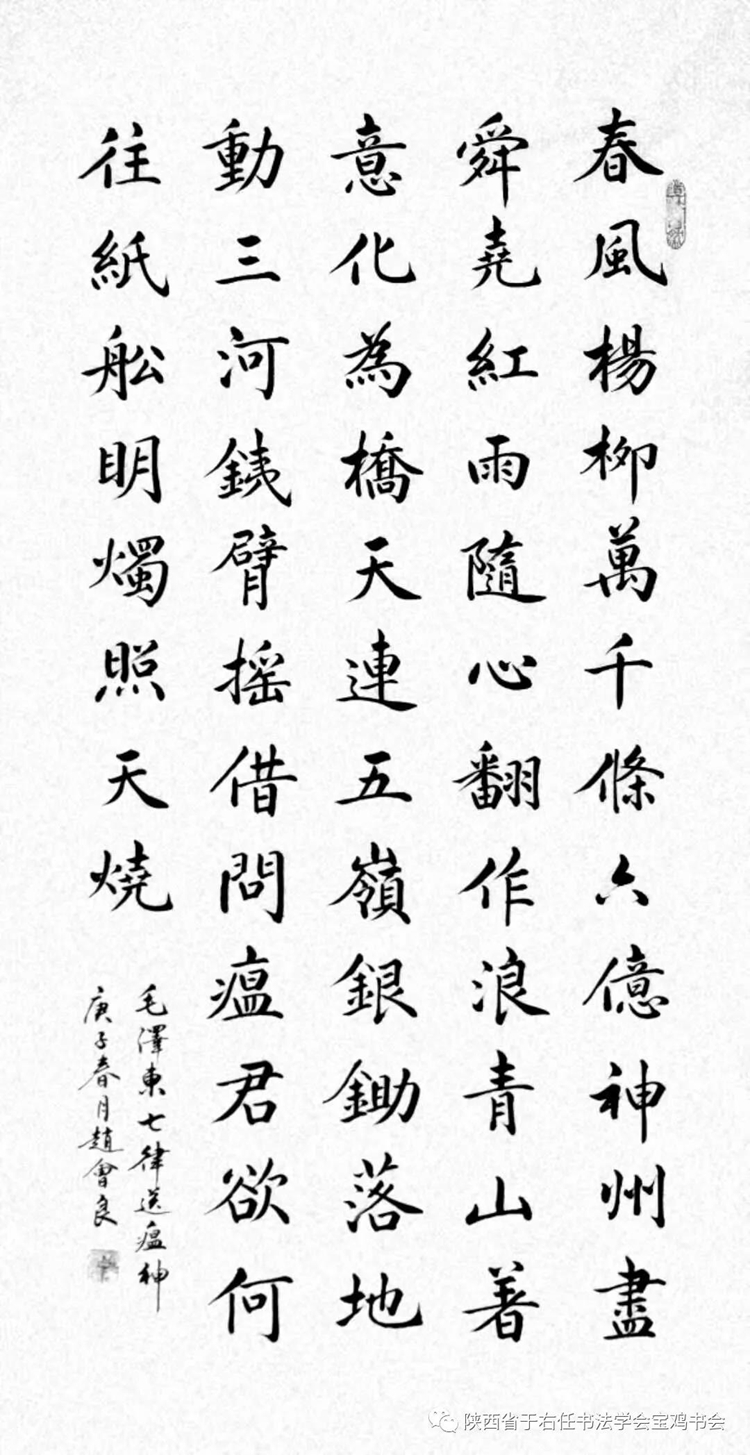 春風楊柳萬千條六億神州盡
舜堯紅雨隨心翻作浪青山著
意化為橋天連五嶺銀鋤落地
動三河銕臂摇借問瘟君欲何
往紙舩明燭照天燒
毛澤東七律送瘟神
庚子春月趙會良
陕西省于右任书法学会宝鸡书会